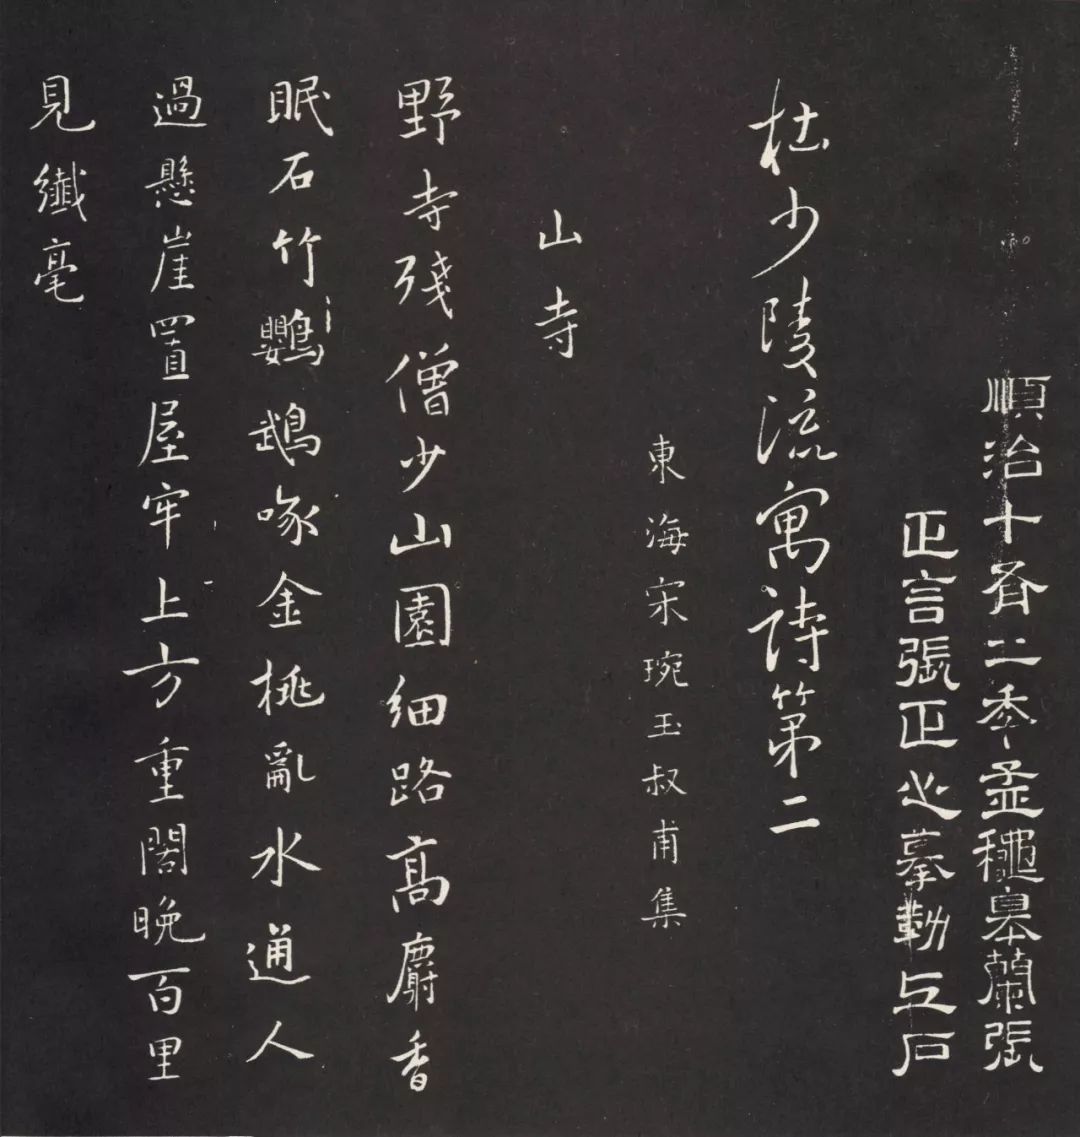 順治十有二秊孟龝皋蘭張
正言張正心摹勒上石
杜少陵流寓詩第二
東海宋琬玉叔甫集
山寺
野寺殘僧少山園細路髙麝香
眠石竹鸚鵡啄金桃亂水通人
過懸崖置屋牢上方重閣晚百里
見纖毫